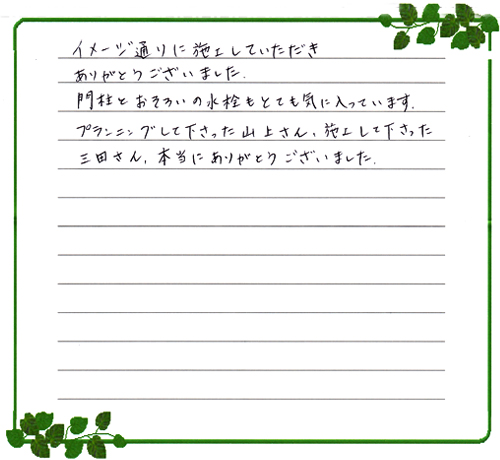 イメージ通りに施工していただき
ありがとうございました.
門柱とおそろいの水栓もとても気に入っています.
プランニングして下さった山上さん、施工して下さった
三田さん、本当にありがとうございました.